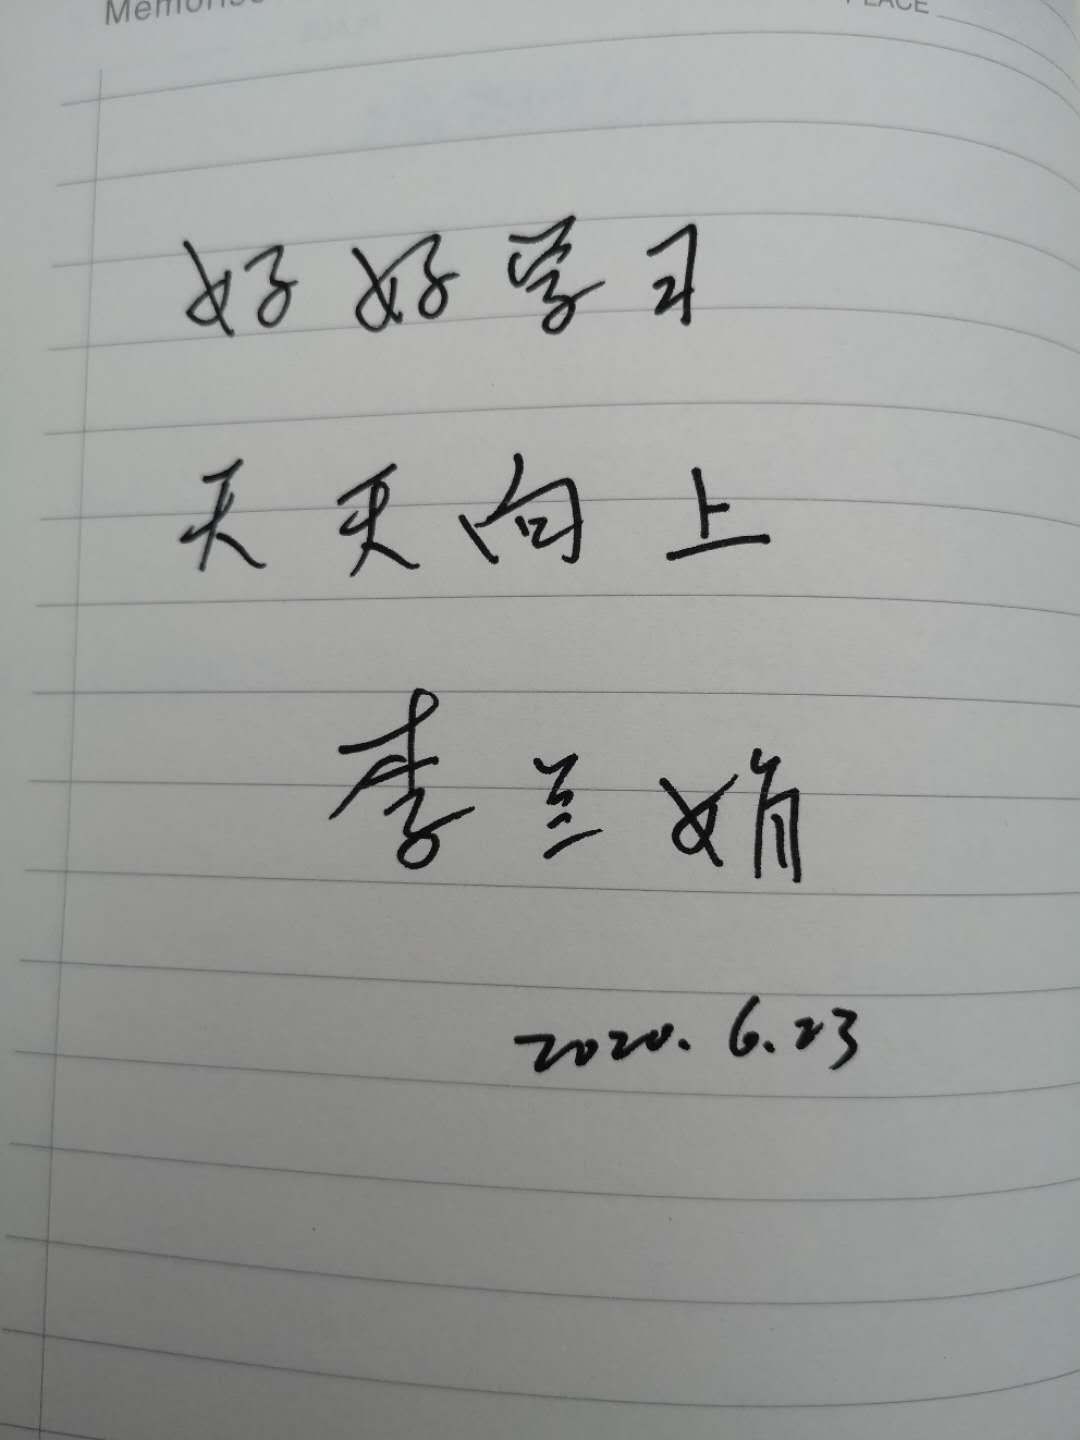 PLACE
好好学习
天天向上
李兰娟
2020.6.23